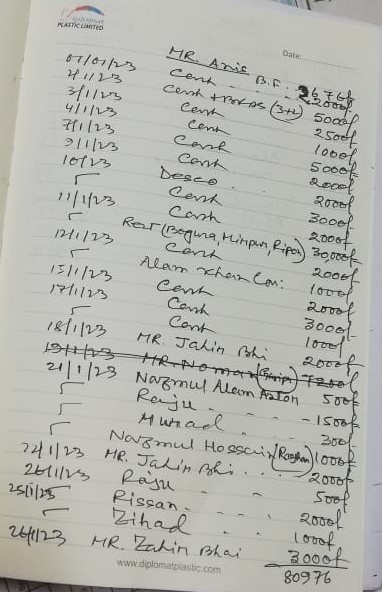 Diplomat
PLASTIC LIMITED
Date:
MR. Anis B.F. 3676/
01/01/23 Cash 2000/
2/1/23 Cash + Bokas (3+2) 5000/
3/1/23 Cash 2500/
4/1/23 Cash 1000/
7/1/23 Cash 5000/
9/1/23 Cash 2000/
10/23 Desco
Cash 2000/
Cash 3000/
11/1/23 Cash 2000/
Rent (Bogura, Mirpur, Ripon) 30,000/
12/1/23 Cash 2000/
Alam Khan Con: 1000/
15/1/23 Cash 2000/
17/1/23 Cash 3000/
Cash 1000/
18/1/23 MR. Jahin Bhi 2000/
19/1/23 MR. Noman 7200/
21/1/23 Nazmul Alam 500/
Raju 1500/
Murad 300/
Nazmul Hossain 1000/
22/1/23 MR. Jahin Bhi 2000/
26/1/23 Raju 500/
25/1/23 Rissan 2000/
Zihad 1000/
26/1/23 MR. Zahin Bhai 3000/
80976
www.diplomatplastic.com